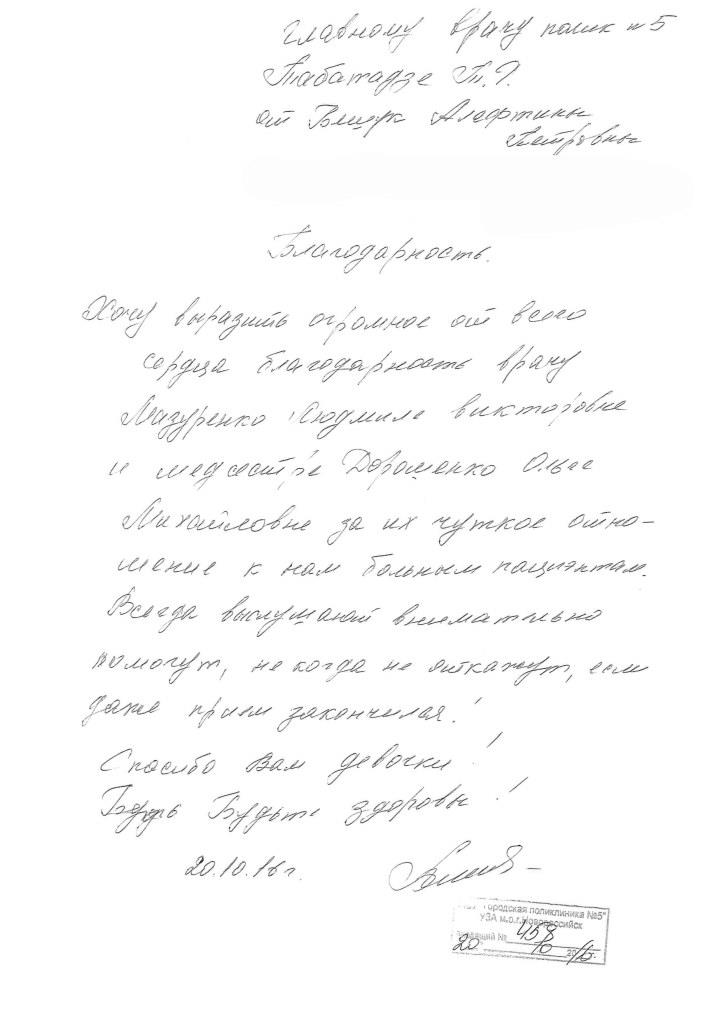 главному врачу полик n 5
Табатадзе Т. Г.
от Алефтины
Петровны
Благодарность.
Хочу выразить огромное от всего
сердца благодарность врачу
Мазуренко Людмиле викторовне
и медсестре Дорошенко Ольге
Михайловне за их чуткое отно-
шение к нам больным пациэнтам.
Всегда выслушают внимательно
помогут, не когда не откажут, если
даже прием закончился!
Спасибо Вам девочки!
Будьте здоровы!
20.10.16 г.
"Городская поликлиника №5"
УЗА м.о.г.Новороссийск
№ 458
20 10 2016г.